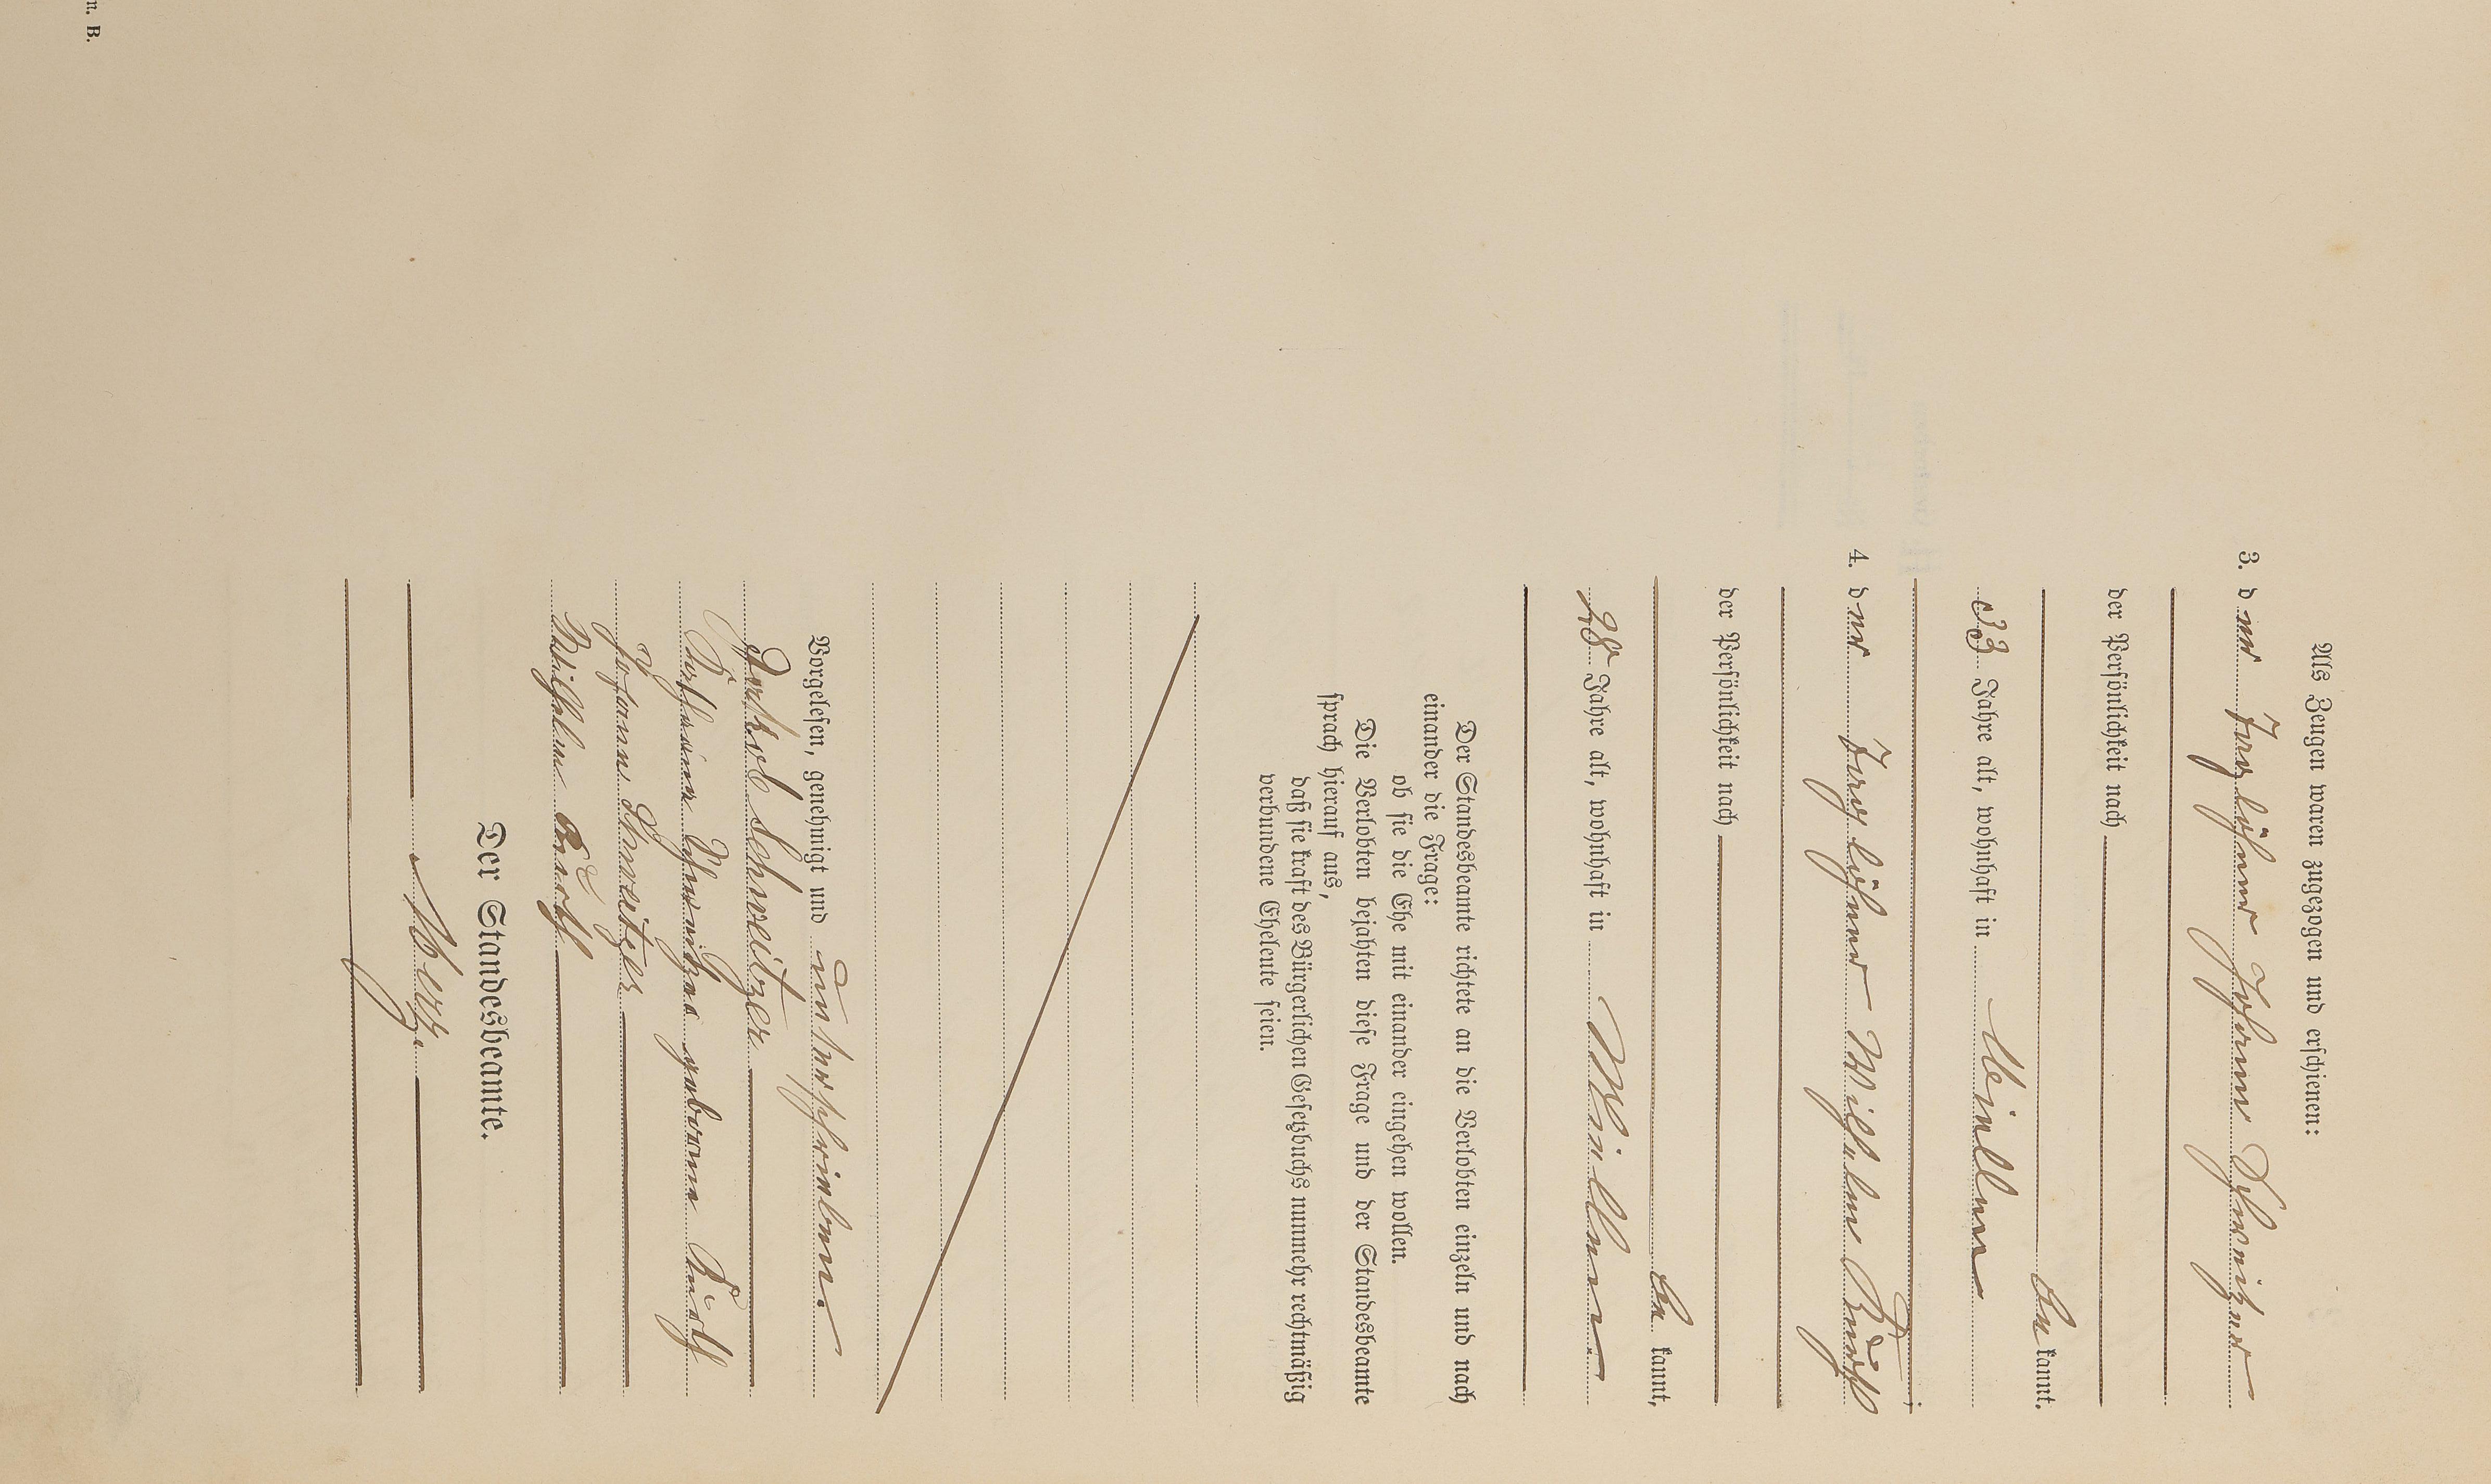 Als Zeugen waren zugezogen und erschienen:
3. der Tagelöhner Johann Schweitzer
der Persönlichkeit nach
be kannt.
33 Jahre alt, wohnhaft in
4. der Tagelöhner Wilhelm
der Persönlichkeit nach
be kannt,
38 Jahre alt, wohnhaft in
Der Standesbeamte richtete an die Verlobten einzeln und nach
einander die Frage:
ob sie die Ehe mit einander eingehen wollen.
Die Verlobten bejahten diese Frage und der Standesbeamte
sprach hierauf aus,
daß sie kraft des Bürgerlichen Gesetzbuchs nunmehr rechtmäßig
verbundene Eheleute seien.
Vorgelesen, genehmigt und unterschrieben.
Jackob Schweitzer
Schweitzer geborene
Johann Schweitzer
Wilhelm
Der Standesbeamte.
Merz.
n. B.